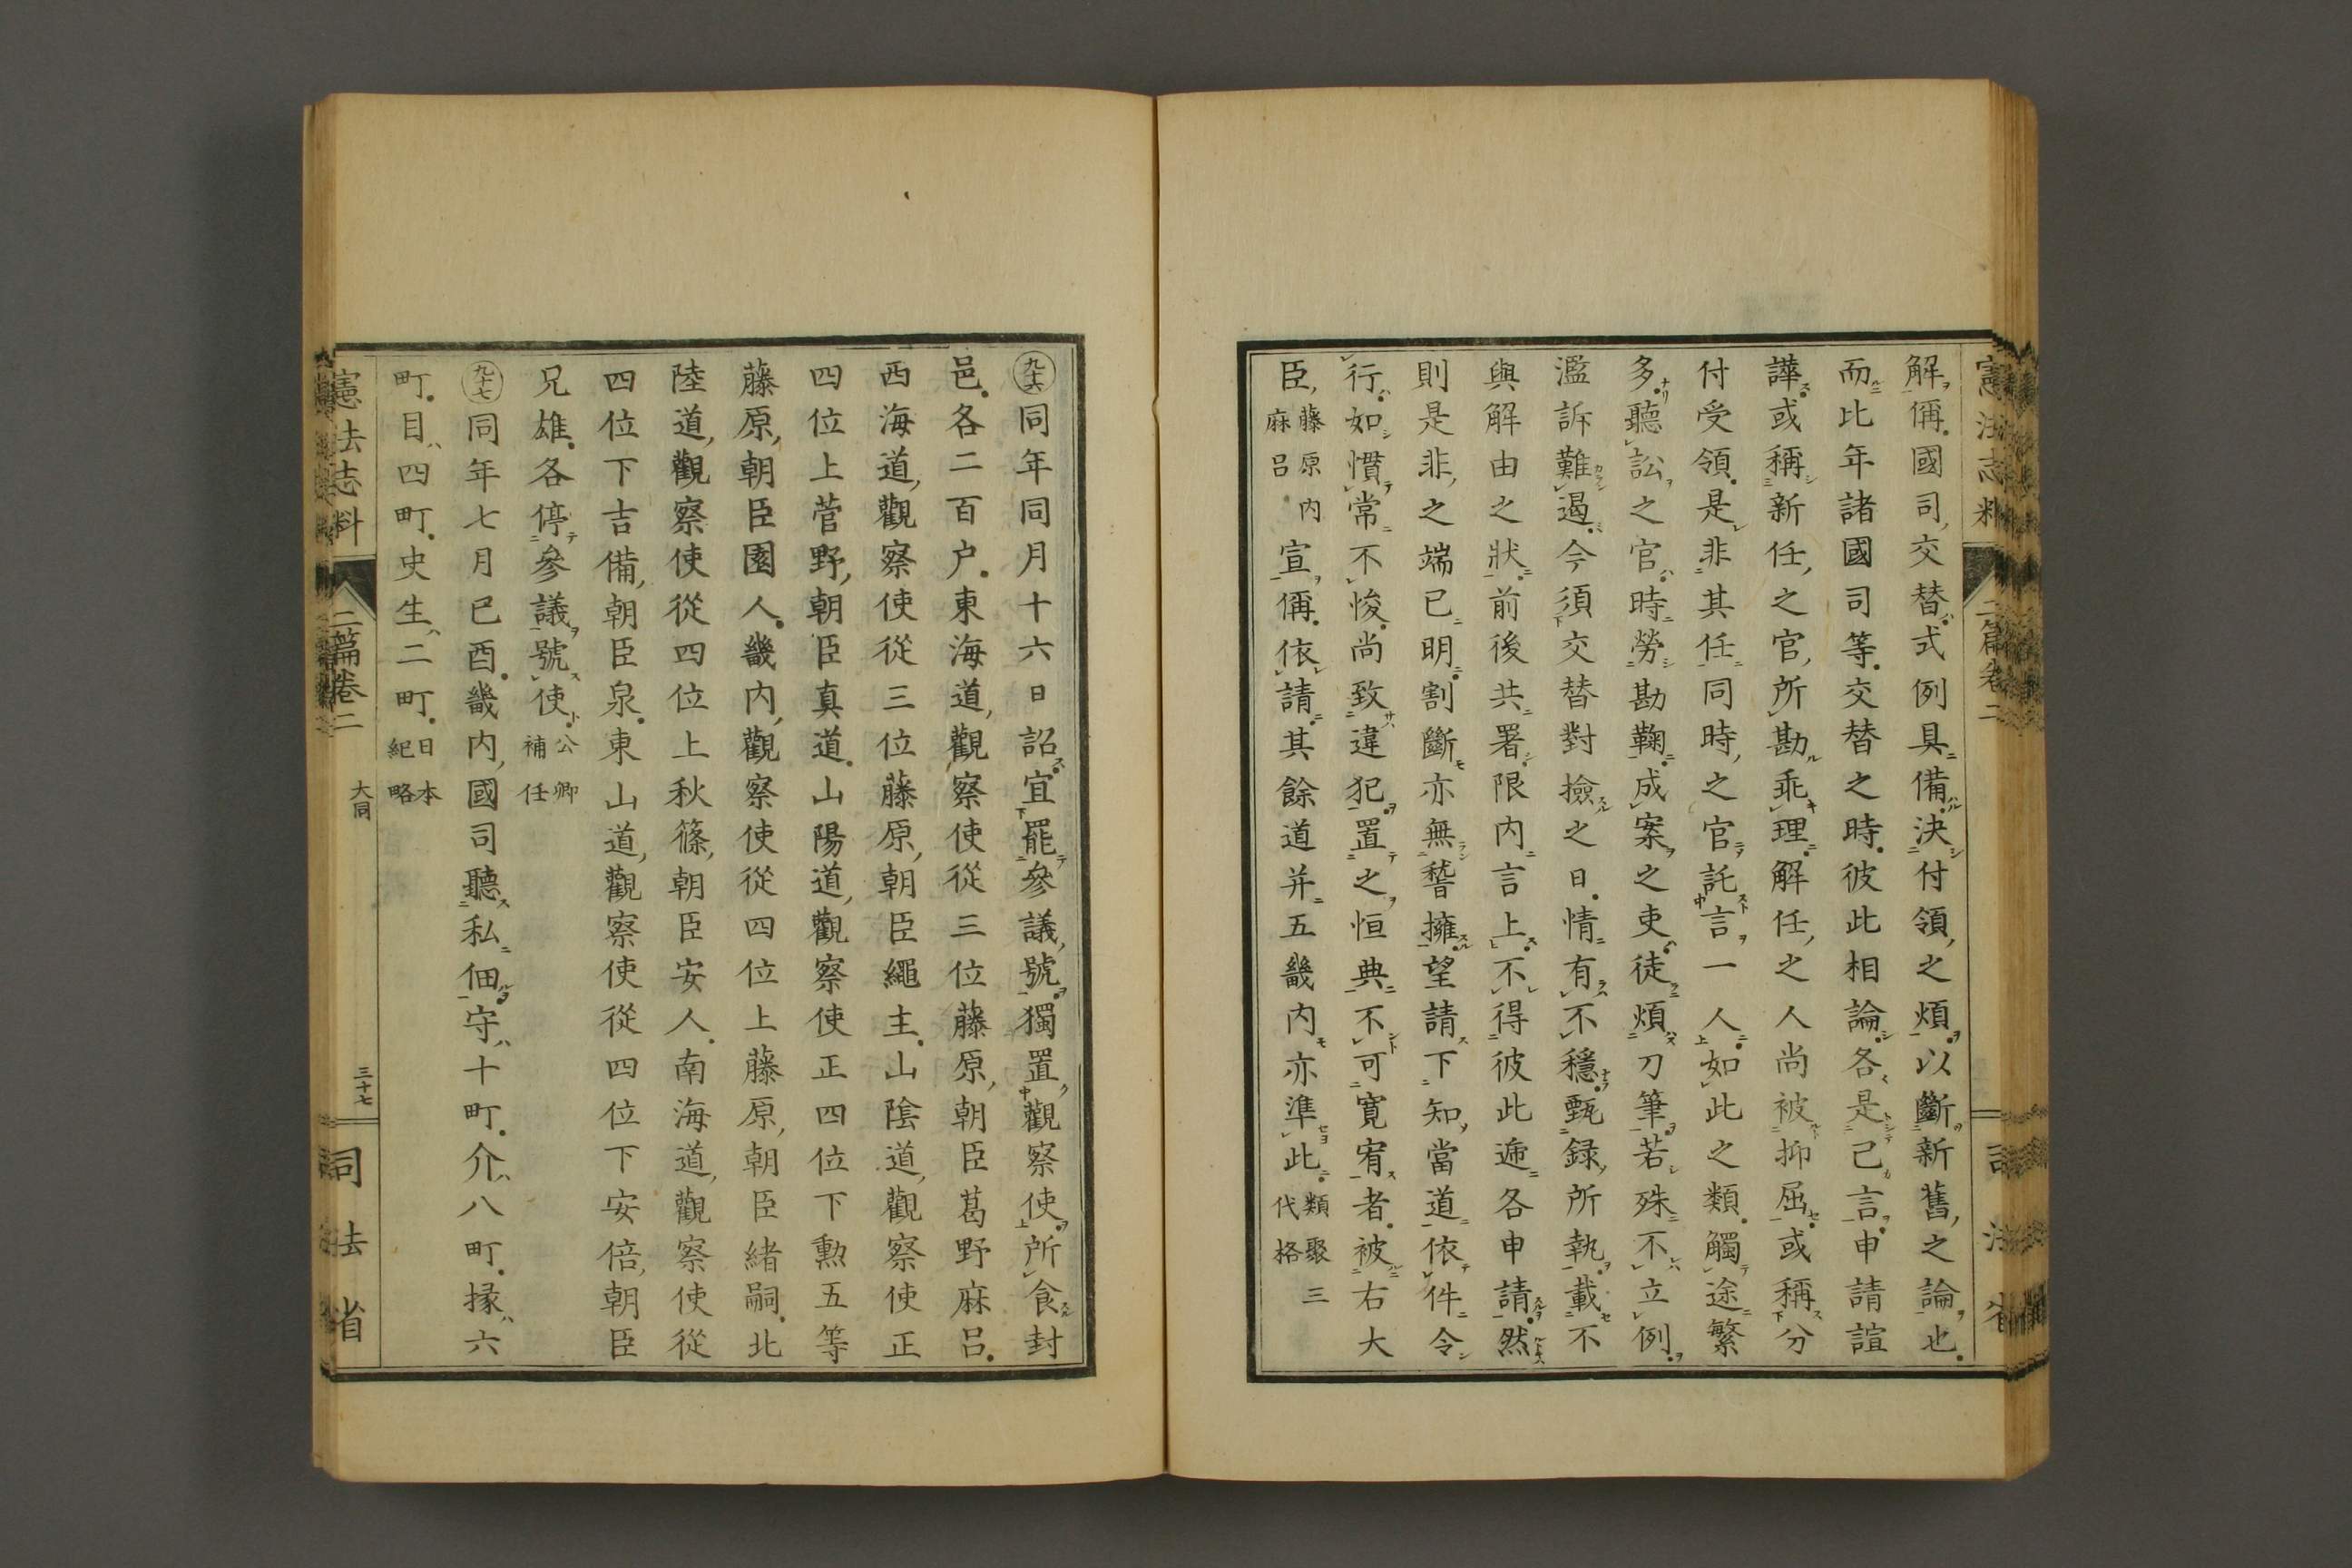 憲法志料
二篇卷二
司法省
解偁國司交替式例具備決付領之煩以斷新舊之論也
而比年諸國司等交替之時彼此相論各是己言申請諠
譁或稱新任之官所勘乖理解任之人尚被抑屈或稱分
付受領是非其任同時之官託言一人如此之類觸途繁
多聽訟之官時勞勘鞠成案之吏徒煩刀筆若殊不立例
濫訴難遏今須交替對撿之日情有不穩甄録所執載不
與解由之狀前後共署限内言上不得彼此遞各申請然
則是非之端已明割斷亦無稽擁望請下知當道依件令
行如慣常不悛尚致違犯置之恒典不可寛宥者被右大
臣藤原内麻呂宣偁依請其餘道并五畿内亦準此類聚三代格
九十六同年同月十六日詔宜罷參議號獨置觀察使所食封
邑各二百户東海道觀察使從三位藤原朝臣葛野麻呂
西海道觀察使從三位藤原朝臣繩主山陰道觀察使正
四位上菅野朝臣真道山陽道觀察使正四位下勲五等
藤原朝臣園人畿内觀察使從四位上藤原朝臣緒嗣北
陸道觀察使從四位上秋篠朝臣安人南海道觀察使從
四位下吉備朝臣泉東山道觀察使從四位下安倍朝臣
兄雄各停參議號使公卿補任
九十七同年七月已酉畿内國司聽私佃守ハ十町介ハ八町掾ハ六
町目ハ四町史生ハ二町日本紀略
憲法志料
二篇卷二
大同
三十七
司法省